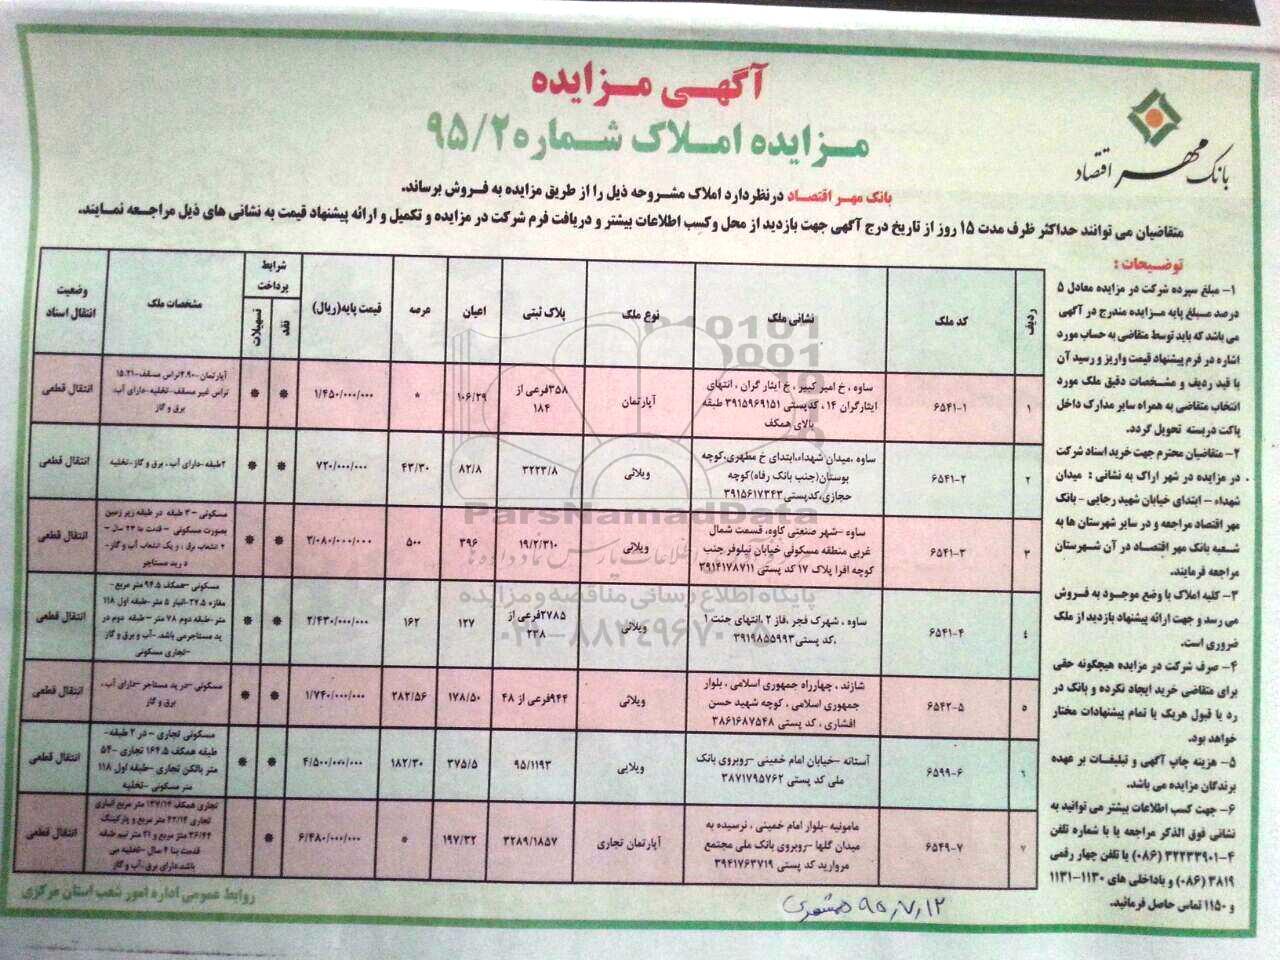 آگهی مزایده
مزایده املاک شماره ۹۵/۲
بانک مهر اقتصاد
بانک مهر اقتصاد درنظردارد املاک مشروحه ذیل را از طریق مزایده به فروش برساند.
متقاضیان می توانند حداکثر ظرف مدت ۱۵ روز از تاریخ درج آگهی جهت بازدید از محل وکسب اطلاعات بیشتر و دریافت فرم شرکت در مزایده و تکمیل و ارائه پیشنهاد قیمت به نشانی های ذیل مراجعه نمایند.
توضیحات :
۱- مبلغ سپرده شرکت در مزایده معادل ۵
درصد مبلغ پایه مزایده مندرج در آگهی
می باشد که باید توسط متقاضی به حساب مورد
اشاره در فرم پیشنهاد قیمت واریز و رسید آن
با قید ردیف و مشخصات دقیق ملک مورد
انتخاب متقاضی به همراه سایر مدارک داخل
پاکت دربسته تحویل گردد.
۲- متقاضیان محترم جهت خرید اسناد شرکت
در مزایده در شهر اراک به نشانی : میدان
شهداء - ابتدای خیابان شهید رجایی - بانک
مهر اقتصاد مراجعه و در سایر شهرستان ها به
شعبه بانک مهر اقتصاد در آن شهرستان
مراجعه فرمایند.
۳- کلیه املاک با وضع موجود به فروش
می رسد و جهت ارائه پیشنهاد بازدید از ملک
ضروری است.
۴- صرف شرکت در مزایده هیچگونه حقی
برای متقاضی خرید ایجاد نکرده و بانک در
رد یا قبول هریک یا تمام پیشنهادات مختار
خواهد بود.
۵- هزینه چاپ آگهی و تبلیغات بر عهده
برندگان مزایده می باشد.
۶- جهت کسب اطلاعات بیشتر می توانید به
نشانی فوق الذکر مراجعه یا با شماره تلفن
۳۲۲۳۳۹۰۱-۴ (۰۸۶) یا تلفن چهار رقمی
۳۸۱۹ (۰۸۶) و باداخلی های ۱۱۳۰-۱۱۳۱
و ۱۱۵۰ تماس حاصل فرمائید.
ردیف کد ملک نشانی ملک نوع ملک پلاک ثبتی اعیان عرصه قیمت پایه(ریال) شرایط پرداخت نقد تسهیلات مشخصات ملک وضعیت انتقال اسناد
۱ ۶۵۴۱-۱ ساوه ، خ امیر کبیر ، خ ایثار گران ، انتهای
ایثارگران ۱۴ ، کدپستی ۳۹۱۵۹۶۹۱۵۱ طبقه
بالای همکف
آپارتمان ۳۵۸فرعی از ۱۸۴ ۱۰۶/۲۹ * ۱/۴۵۰/۰۰۰/۰۰۰ * *
آپارتمان-۲.۹۰تراس مسقف-۱۵.۲۱
تراس غیر مسقف-تخلیه-دارای آب، برق و گاز
انتقال قطعی
۲ ۶۵۴۱-۲ ساوه ،میدان شهداء،ابتدای خ مطهری،کوچه
بوستان(جنب بانک رفاه)کوچه
حجازی،کدپستی۳۹۱۵۶۱۷۳۴۳
ویلائی ۳۲۲۳/۸ ۸۲/۸ ۴۳/۳۰ ۷۲۰/۰۰۰/۰۰۰ * *
۲طبقه-دارای آب، برق و گاز-تخلیه
انتقال قطعی
۳ ۶۵۴۱-۳ ساوه -شهر صنعتی کاوه، قسمت شمال
غربی منطقه مسکونی خیابان نیلوفر جنب
کوچه افرا پلاک ۱۷ کد پستی ۳۹۱۴۱۷۸۷۱۱
ویلائی ۱۹/۲/۳۱۰ ۳۹۶ ۵۰۰ ۳/۰۸۰/۰۰۰/۰۰۰ * *
مسکونی - ۳ طبقه در طبقه زیر زمین
بصورت مسکونی - قدمت بنا ۲۳ سال -
۲ انشعاب برق ، و یک انشعاب آب و گاز-
در ید مستاجر
انتقال قطعی
۴ ۶۵۴۱-۴ ساوه ، شهرک فجر ،فاز ۲ ،انتهای جنت ۱
،کد پستی ۳۹۱۹۸۵۵۹۹۳
ویلائی ۲۷۸۵فرعی از ۲۳۸ ۱۲۷ ۱۶۲ ۲/۴۳۰/۰۰۰/۰۰۰ * *
مسکونی -همکف ۹۴.۵ متر مربع-
مغازه ۲۷.۵-انبار ۵ متر-طبقه اول ۱۱۸
متر -طبقه دوم ۷۸ متر -طبقه دوم در
ید مستاجرمی باشد. -آب و برق و گاز
-تجاری مسکونی
انتقال قطعی
۵ ۶۵۴۲-۵ شازند ، چهارراه جمهوری اسلامی ، بلوار
جمهوری اسلامی ، کوچه شهید حسن
افشاری ، کد پستی ۳۸۶۱۶۸۷۵۴۸
ویلائی ۹۴۴فرعی از ۴۸ ۱۷۸/۵۰ ۲۸۲/۵۶ ۱/۷۴۰/۰۰۰/۰۰۰ * *
مسکونی -در ید مستاجر -دارای آب، برق و گاز
انتقال قطعی
۶ ۶۵۹۹-۶ آستانه -خیابان امام خمینی -روبروی بانک
ملی کد پستی ۳۸۷۱۷۹۵۷۶۲
ویلایی ۹۵/۱۱۹۳ ۳۷۵/۵ ۱۸۲/۳۰ ۴/۵۰۰/۰۰۰/۰۰۰ * *
مسکونی تجاری - در ۲ طبقه-
طبقه همکف ۱۶۴.۵ تجاری -۵۴
متر بالکن تجاری -طبقه اول ۱۱۸
متر مسکونی -تخلیه
انتقال قطعی
۷ ۶۵۴۹-۷ مامونیه -بلوار امام خمینی ، نرسیده به
میدان گلها -روبروی بانک ملی مجتمع
مروارید کد پستی ۳۹۴۱۷۶۳۷۱۹
آپارتمان تجاری ۳۲۸۹/۱۸۵۷ ۱۹۷/۳۲ * ۶/۴۸۰/۰۰۰/۰۰۰ *
تجاری همکف ۱۳۷/۱۴ متر مربع انباری
تجاری ۴۲/۱۴ متر مربع و پارکینگ
۳۶/۴۴ متر مربع و ۲۱ متر نیم طبقه
قدمت بنا ۴ سال -تخلیه می
باشد.دارای برق،آب و گاز
انتقال قطعی
روابط عمومی اداره امور شعب استان مرکزی
۹۵,۷,۱۲ همشهری
ParsNamadData
پایگاه اطلاع رسانی مناقصه و مزایده
۰۲۱-۸۸۳۴۹۶۷۰-۵